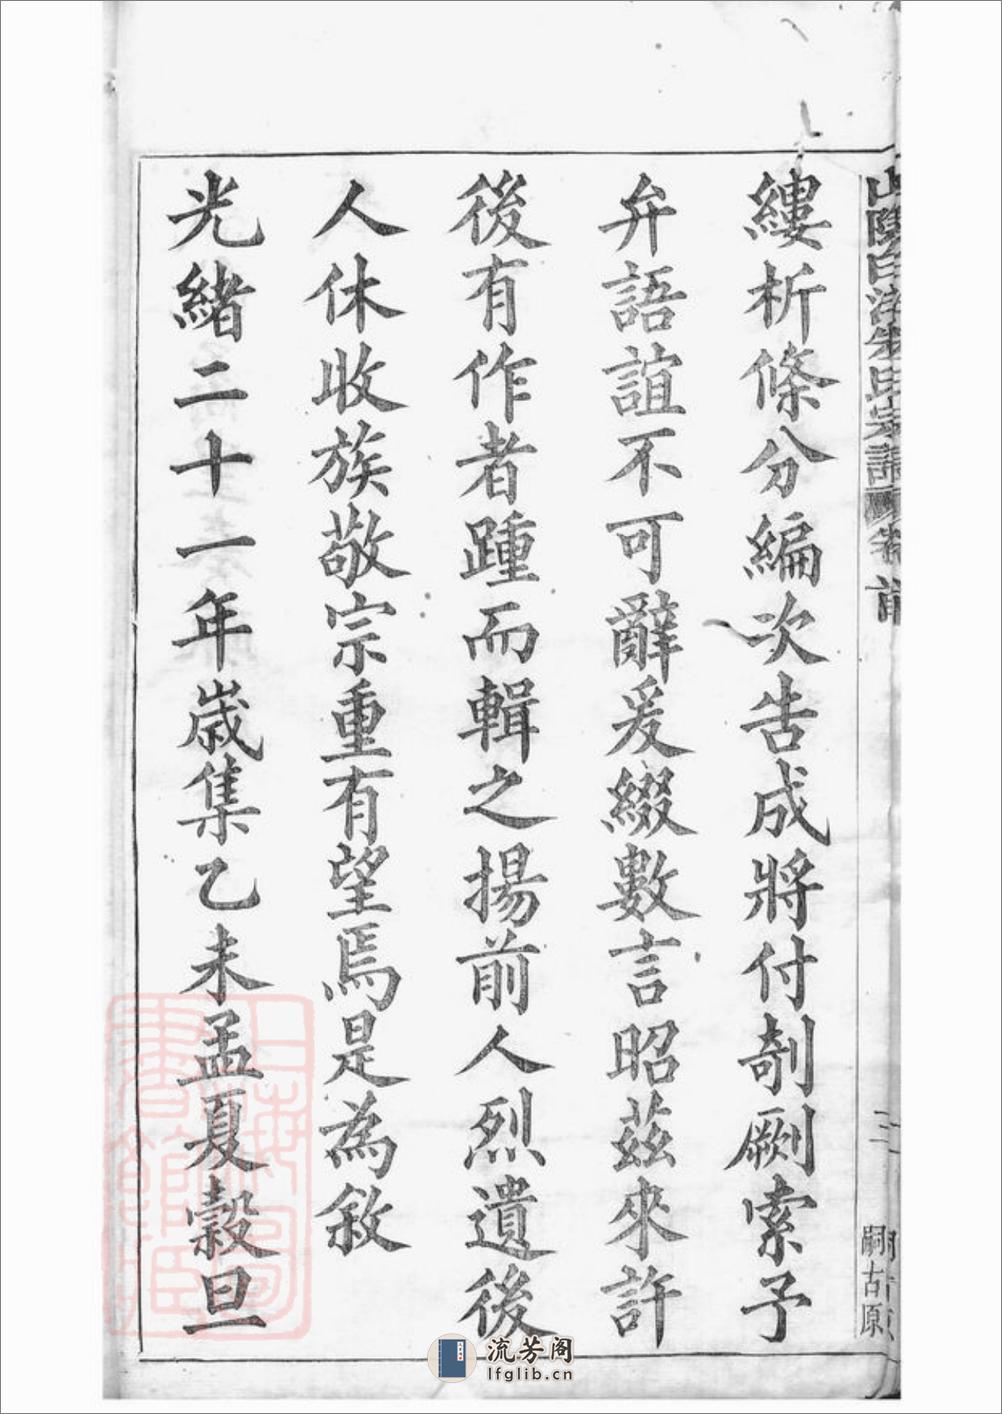 縷析條分編次告成將付剞劂索予
弁語誼不可辭爰綴數言昭茲來許
後有作者踵而輯之揚前人烈遺後
人休收族敬宗重有望焉是為敘
光緒二十一年歲集乙未孟夏穀旦
山陰白洋朱氏宗譜 卷首
二
嗣古原
流芳阁
lfglib.cn